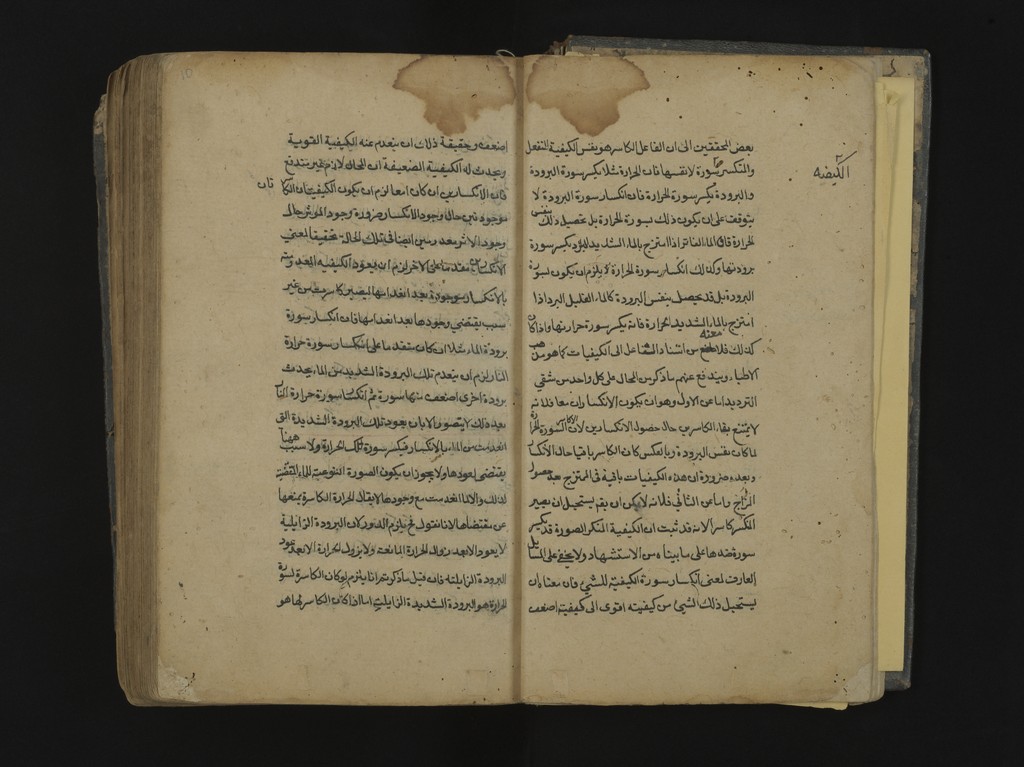 بعض المحققين الى ان الفاعل الكاسر هو نفس الكيفية المنفعل
والمنكسر سورتها لانفسها فان الحرارة مثلا يكسر سورة البرودة
والبرودة يكسر سورة الحرارة فان انكسار سورة البرودة لا
يتوقف على ان يكون ذلك بسورة الحرارة بل يحصل ذلك بنفس
الحرارة فان الماء الفاتر اذا امتزج بالماء الشديد البرد يكسر سورة
برودتها وكذلك انكسار سورة الحرارة لا يلزم ان يكون بسورة
البرودة بل قد يحصل بنفس البرودة كالماء القليل البرد اذا
امتزج بالماء الشديد الحرارة فانه يكسر سورة حرارتها واذا كان
كذلك فلا من استناد التفاعل الى الكيفيات كما هو مذهب
الاطباء ويندفع عنهم ما ذكر من المحال على كل واحد من شقي
الترديد اما عن الاول وهو ان يكون الانكساران معا فلانه
لا يمتنع بقاء الكاسرين حال حصول الانكسارين لان الكاسر لسورة الحرارة
لما كان نفس البرودة وبالعكس كان الكاسر باقيا حال الانكسار
وبعده ضرورة ان هذه الكيفيات باقية في الممتزج عند حصول
المزاج واما عن الثاني فلانه لا يمكن ان يقم يستحيل ان يصير
المنكسر كاسرا لانه قد ثبت ان الكيفية المنكسر الصورة قد يكسر
سورة ضدها على ما بيناه من الاستشهاد ولا يخفى على المتأمل
العارف لمعنى انكسار سورة الكيفية للشئ فان معناه ان
يستحيل ذلك الشئ من كيفيته اقوى الى كيفيته اضعف
الكيفيه
اضعف وحقيقة ذلك ان ينعدم عنه الكيفية القوية
ويحدث له الكيفية الضعيفة ان المحال لازم غير مندفع
فان الانكسارين ان كان معا لزم ان يكون الكيفيتان
موجودتين حال وجود الانكسار ضرورة وجود المؤثر حال
وجود الاثر معدومتين ايضا في تلك الحالة تحقيقا لمعنى
الانكسار وان كان متقدما على الاخر لزم ان يعود الكيفيه المعدومة
بالانكسار موجودة بعد انعدامها ليصير كاسرة من غير
سبب يقتضي وجودها بعد انعدامها فان انكسار سورة
برودة الماء مثلا ان كان متقدما على انكسار سورة حرارة
النار لزم ان ينعدم تلك البرودة الشديد من الماء يحدث
برودة اخرى اضعف منها سورة ثم انكسار سورة حرارة النار
بعد ذلك لا يتصور الا بان يعود تلك البرودة الشديدة التي
انعدمت من الماء بالانكسار فيكسر سورة تلك الحرارة ولا سبب ههنا
يقتضى لعودها ولا يجوز ان يكون الصورة النوعية للماء المقتضية
لذلك والا لما انعدمت مع وجودها لا يقال الحرارة الكاسرة يمنعها
عن مقتضاها لانا نقول فح يلزم الدور لان البرودة الزايلية
لا يعود الا بعد زوال الحرارة المانعة ولا يزول الحرارة الا بعد عود
البرودة الزايلة فان قيل ما ذكرتم انما يلزم لو كان الكاسرة لسورة
الحرارة هو البرودة الشديدة الزايلة اما اذا كان الكاسر لها هو
فان
10